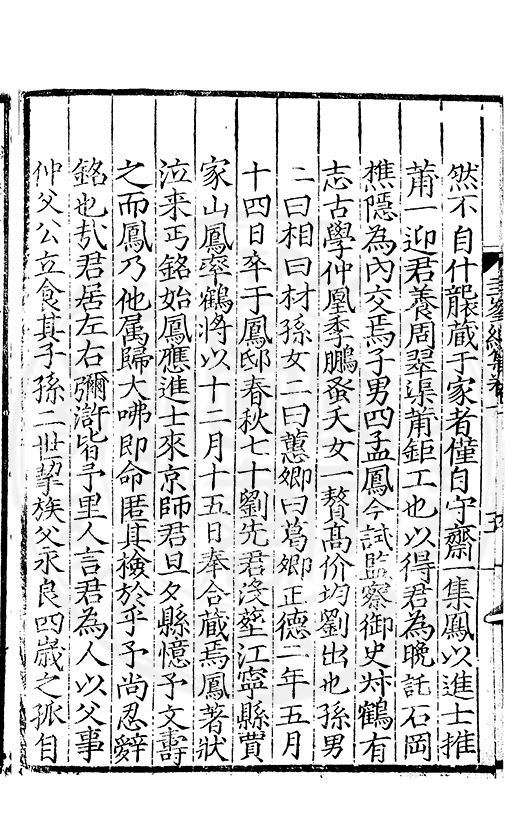 然不自什襲藏于家者僅自守齋一集鳳以進士推
莆一迎君養周翠渠莆鉅工也以得君為晚託石岡
樵隱為內交焉子男四孟鳳今試監察御史次鶴有
志古學仲凰季鵬蚤夭女一贅高价均劉出也孫男
二曰相曰材孫女二曰蕙卿曰蔿卿正德二年五月
十四日卒于鳳邸春秋七十劉先君沒塟江寧縣賈
家山鳳率鶴將以十二月十五日奉合藏焉鳳著狀
泣来丐銘始鳳應進士來京師君旦夕縣憶予文壽
之而鳳乃他属歸大咈即命匿其檢於乎予尚忍辤
銘也㢤君居左右彌滸皆予里人言君為人以父事
仲父公立食其子孫二世挈族父永良四歲之孤自